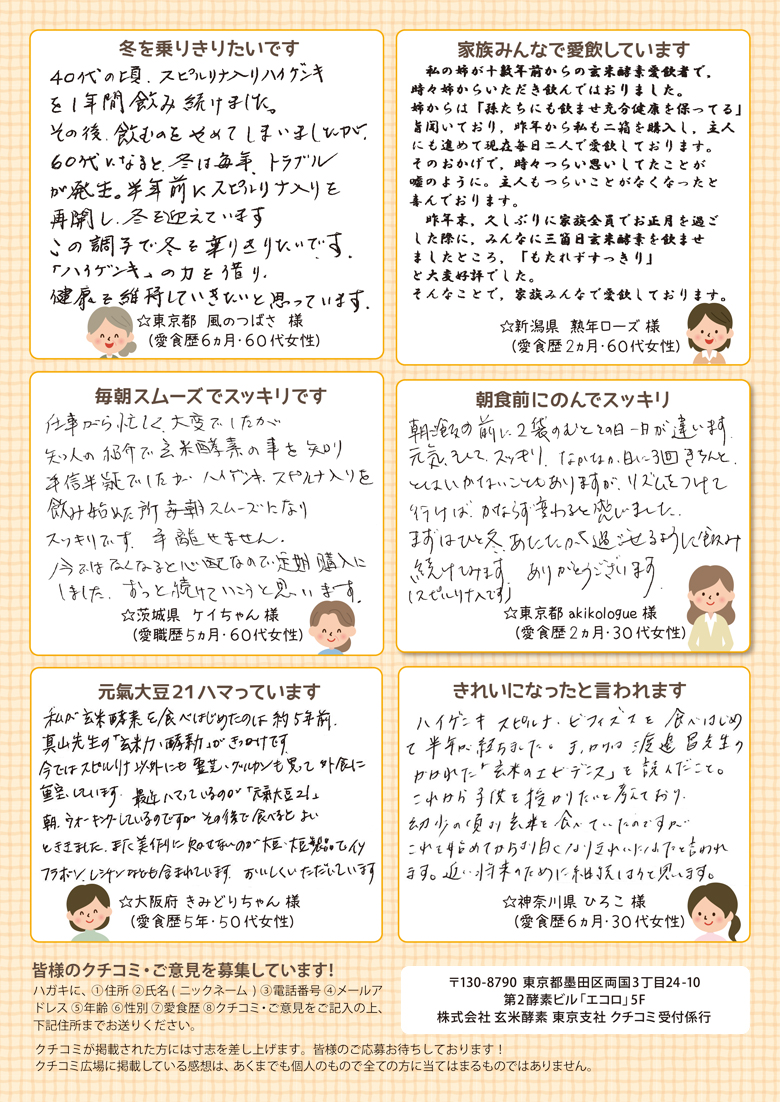 冬を乗りきりたいです
40代の頃、スピルリナ入りハイゲンキ
を1年間飲み続けました。
その後、飲むのをやめてしまいましたが、
60代になると、冬は毎年、トラブル
が発生。半年前にスピルリナ入りを
再開し、冬を迎えています
この調子で冬を乗りきりたいです。
「ハイゲンキ」の力を借り、
健康を維持していきたいと思っています。
☆東京都 風のつばさ 様
(愛食歴6ヵ月・60代女性)
家族みんなで愛飲しています
私の姉が十数年前からの玄米酵素愛飲者で、
時々姉からいただき飲んではおりました。
姉からは「孫たちにも飲ませ充分健康を保ってる」
旨聞いており、昨年から私も二箱を購入し、主人
にも進めて現在毎日二人で愛飲しております。
そのおかげで、時々つらい思いしてたことが
嘘のように。主人もつらいことがなくなったと
喜んでおります。
昨年末、久しぶりに家族全員でお正月を過ご
した際に、みんなに三箇日玄米酵素を飲ませ
ましたところ、「もたれずすっきり」
と大変好評でした。
そんなことで、家族みんなで愛飲しております。
☆新潟県 熟年ローズ 様
(愛食歴2ヵ月・60代女性)
毎朝スムーズでスッキリです
仕事がら忙しく、大変でしたが
知人の紹介で玄米酵素の事を知り
半信半疑でしたが、ハイゲンキ、スピルリナ入りを
飲み始めた所毎朝スムーズになり
スッキリです。手離せません。
今ではなくなると心配なので定期購入に
しました。ずっと続けていこうと思います。
☆茨城県 ケイちゃん 様
(愛職歴5ヵ月・60代女性)
朝食前にのんでスッキリ
朝ご飯の前に2袋のむとその日一日が違います。
元気、そして、スッキリ。なかなか日に3回きちんと、
とはいかないこともありますが、リズムをつけて
行けば、かならず変わると感じました。
まずはひと冬、あたたかく過ごせるように飲み
続けてみます。ありがとうございます。
(スピルリナ入です)
☆東京都 akikologue 様
(愛食歴2ヵ月・30代女性)
元氣大豆21ハマっています
私が玄米酵素を食べはじめたのは約5年前。
真山先生の「玄米力・酵素力」がきっかけです。
今ではスピルリナ以外にも霊芝・グルカンも買って外食に
重宝しています。最近ハマっているのが「元氣大豆21」
朝、ウォーキングしているのですがその後で食べるとよい
とききました。また美作りに欠かせないのが大豆・大豆製品でイソ
フラボン、レシチンなども含まれています。おいしくいただいています
☆大阪府 きみどりちゃん 様
(愛食歴5年・50代女性)
きれいになったと言われます
ハイゲンキ スピルリナ、ビフィズスを食べはじめ
て半年が経ちました。きっかけは渡邊昌先生の
かかれた「玄米のエビデンス」を読んだこと。
これから子供を授かりたいと考えており、
幼少の頃より玄米を食べていたのですが
これを始めてからお白くなりきれいになったと言われ
ます。近い将来のために継続しようと思います。
☆神奈川県 ひろこ 様
(愛食歴6ヵ月・30代女性)
皆様のクチコミ・ご意見を募集しています!
ハガキに、①住所 ②氏名(ニックネーム) ③電話番号 ④メールア
ドレス ⑤年齢 ⑥性別 ⑦愛食歴 ⑧クチコミ・ご意見をご記入の上、
下記住所までお送りください。
〒130-8790 東京都墨田区両国3丁目24-10
第2酵素ビル「エコロ」5F
株式会社 玄米酵素 東京支社 クチコミ受付係行
クチコミが掲載された方には寸志を差し上げます。皆様のご応募お待ちしております!
クチコミ広場に掲載している感想は、あくまでも個人のもので全ての方に当てはまるものではありません。